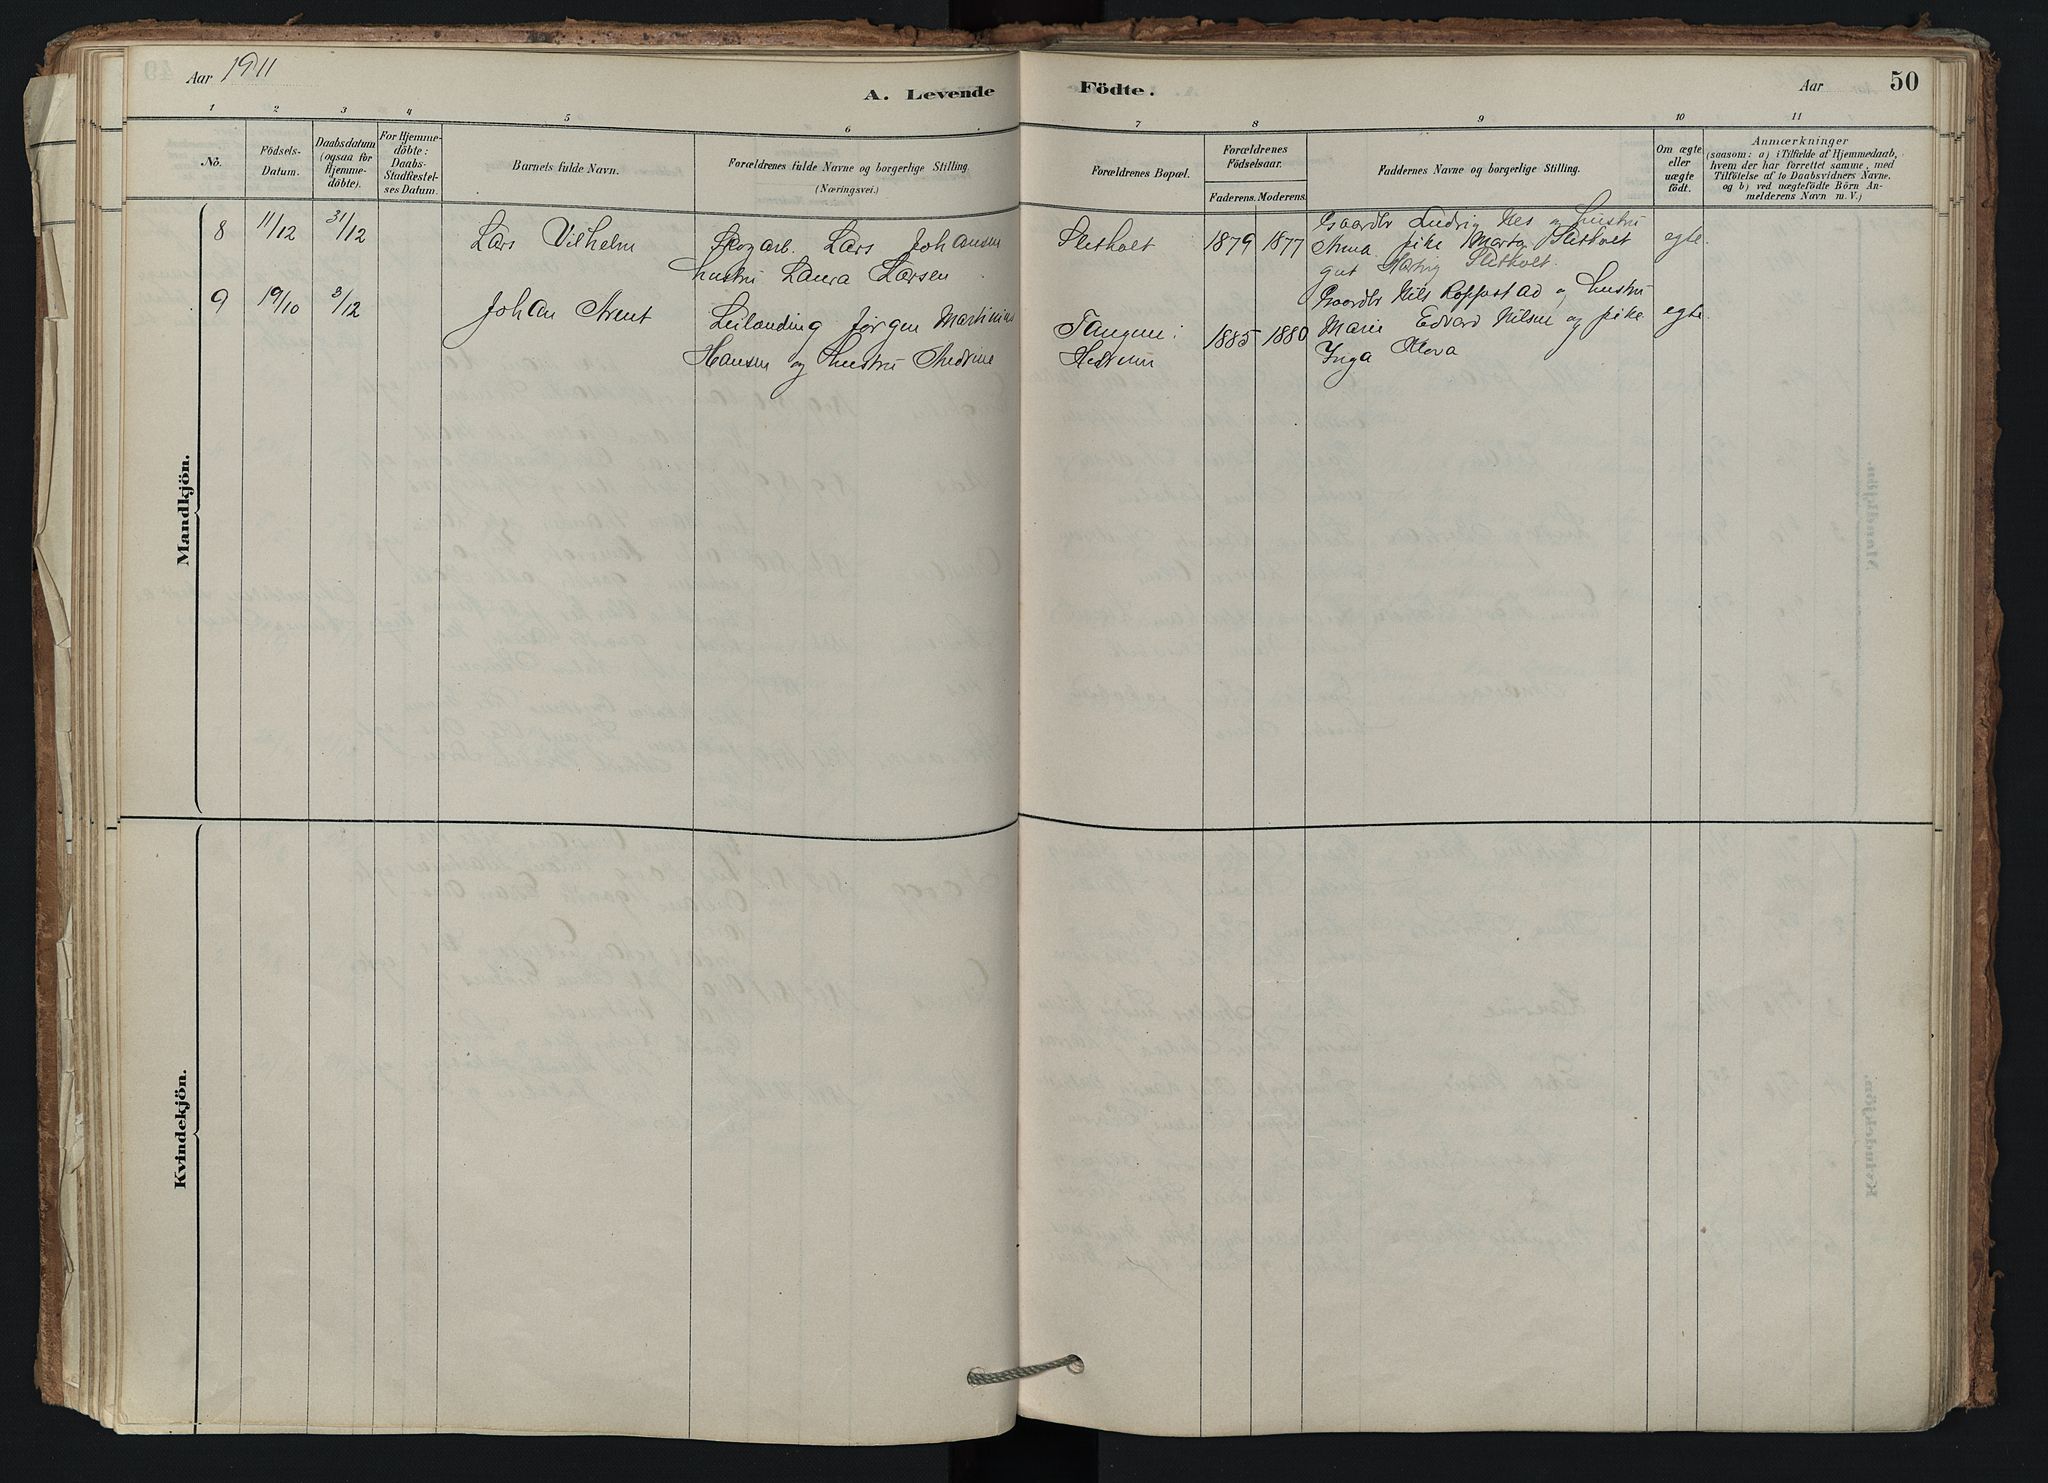 Aar 1911
A. Levende
Födte.
Aar
50
1 2 3 4 5 6 7 8 9 10 11
No.
Födsels-
Datum.
Daabsdatum
(ogsaa for
Hjemme-
döbte).
For Hjemme-
döbte:
Daabs-
Stadfæstel-
ses Datum.
Barnets fulde Navn.
Forældrenes fulde Navne og borgerlige Stilling.
(Næringsvei.)
Forældrenes Bopæl.
Forældrenes
Födselsaar.
Faderens. Moderens.
Faddernes Navne og borgerlige Stilling.
Om ægte
eller
uægte
födt.
Anmærkninger
(saasom: a) i Tilfælde af Hjemmedaab,
hvem der har forrettet samme, med
Tilföielse af to Daabsvidners Navne,
og b) ved uægtefödte Börn An-
melderens Navn m. V.)
Mandkjön.
8 11/12 31/12
Lars Vilhelm
Skogarb. Lars Johansen
hustru Laura Larsen
Sletholt
1879 1877
Gaardbr Ludvig Nes og hustru
Anna pike Marta Sletholt
gut Sletholt
egte.
9 19/10 3/12
Johan Arent
Leilending Jørgen Martinius
Hansen og hustru
Tangen i
Hedrum
1885 1880
Gaardbr Nils Roppestad og hustru
Marie Edvard Nilsen og pike
Inga
egte.
Kvindekjön.